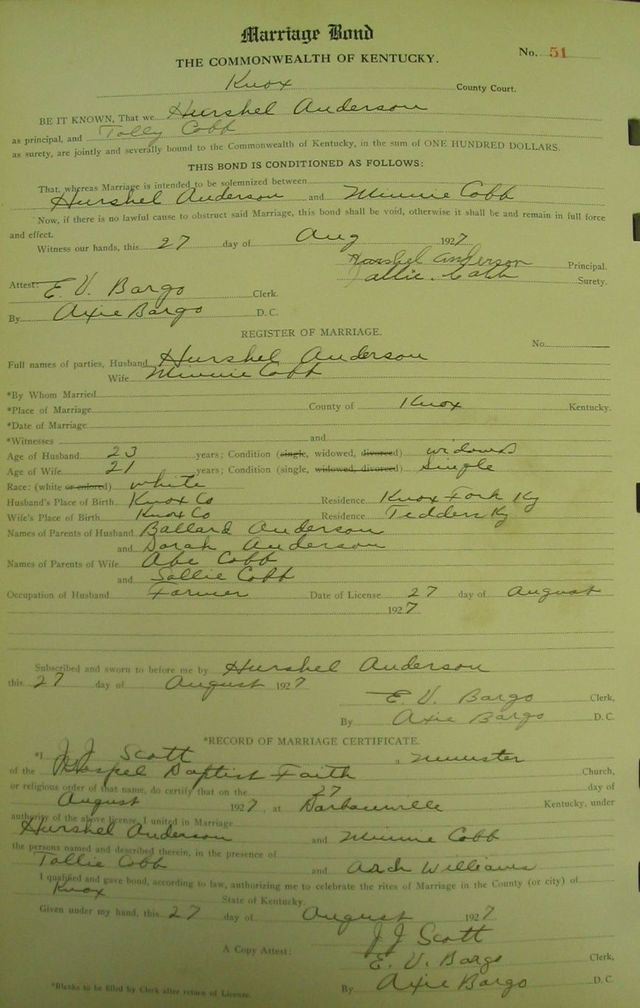 Marriage Bond
THE COMMONWEALTH OF KENTUCKY.
No. 51
Knox County Court.
BE IT KNOWN, That we Hurshel Anderson
as principal, and Tolly Cobb
as surety, are jointly and severally bound to the Commonwealth of Kentucky, in the sum of ONE HUNDRED DOLLARS.
THIS BOND IS CONDITIONED AS FOLLOWS:
That, whereas Marriage is intended to be solemnized between
Hurshel Anderson and Minnie Cobb
Now, if there is no lawful cause to obstruct said Marriage, this bond shall be void, otherwise it shall be and remain in full force
and effect.
Witness our hands, this 27 day of Aug 1927
Hurshel Anderson Principal.
Tallie Cobb Surety.
Attest: E. V. Bargo Clerk.
By Axie Bargo D. C.
REGISTER OF MARRIAGE.
No.
Full names of parties, Husband Hurshel Anderson
Wife Minnie Cobb
*By Whom Married
*Place of Marriage County of Knox Kentucky.
*Date of Marriage
*Witnesses and
Age of Husband 23 years; Condition (single, widowed, divorced) widowed
Age of Wife 21 years; Condition (single, widowed, divorced) single
Race: (white or colored) white
Husband's Place of Birth Knox Co Residence Knox Fork Ky
Wife's Place of Birth Knox Co Residence Tedders Ky
Names of Parents of Husband Ballard Anderson
and Sarah Anderson
Names of Parents of Wife Abe Cobb
and Sallie Cobb
Occupation of Husband Farmer Date of License 27 day of August
1927
Subscribed and sworn to before me by Hurshel Anderson
this 27 day of August 1927
E. V. Bargo Clerk,
By Axie Bargo D. C.
*RECORD OF MARRIAGE CERTIFICATE.
*I J J Scott a Minister
of the Gospel Baptist Faith Church,
or religious order of that name, do certify that on the 27 day of
August 1927, at Barbourville Kentucky, under
authority of the above license, I united in Marriage
Hurshel Anderson and Minnie Cobb
the persons named and described therein, in the presence of
Tallie Cobb and Arch Williams
I qualified and gave bond, according to law, authorizing me to celebrate the rites of Marriage in the County (or city) of
Knox State of Kentucky.
Given under my hand, this 27 day of August 1927
J J Scott
A Copy Attest: E. V. Bargo Clerk,
By Axie Bargo D. C.
*Blanks to be filled by Clerk after return of License.